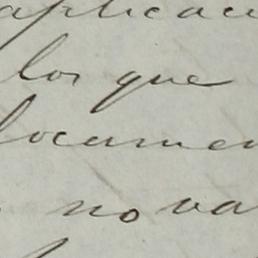 aplicaci
los que
documen
no va